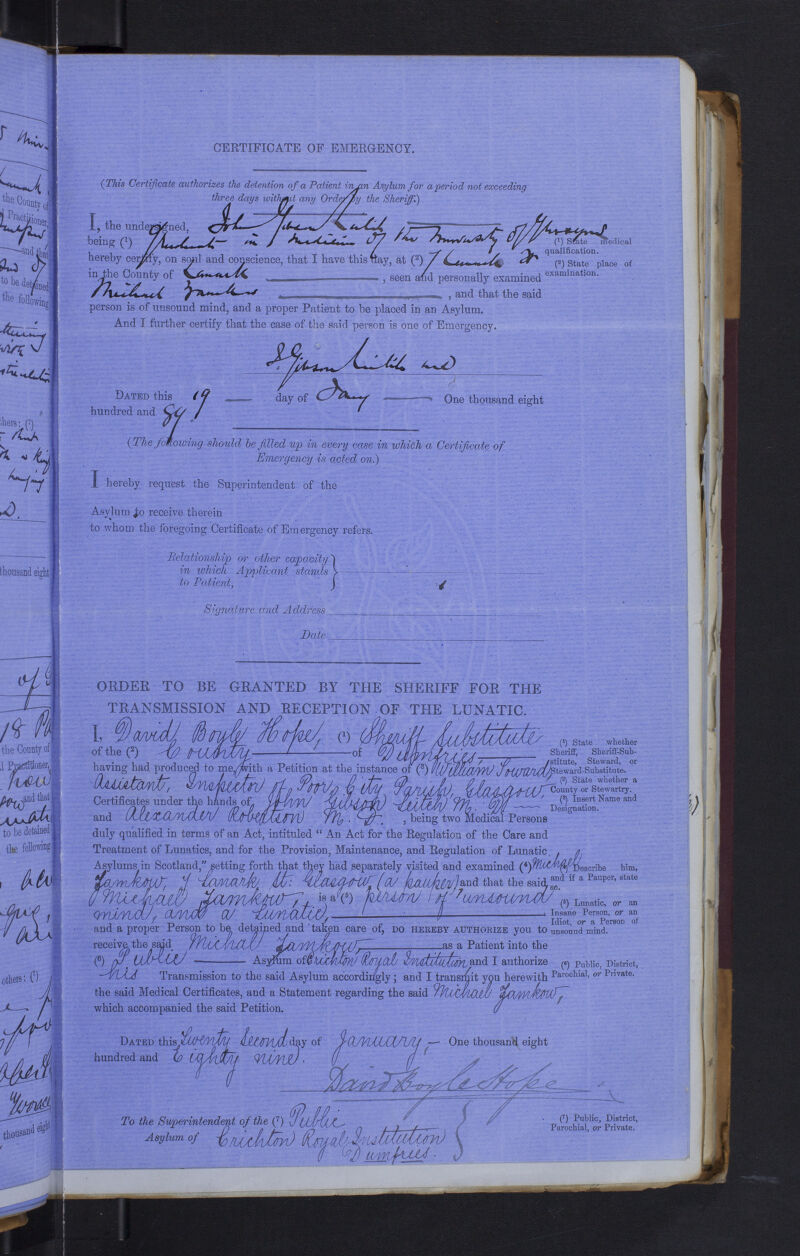 CERTIFICATE OF EMERGENCY.
(This Certificate authorizes the detention of a Patient in an Asylum for a period not exceeding
three days without any Order by the Sheriff.)
I, the undersigned, John Gibson Leitch
being (1) Student in Medicine of the University of Glasgow
(1) State medical
qualification.
hereby certify, on soul and conscience, that I have this day, at (2) 7 Lanark St
(2) State place of
examination.
in the County of Lanark, seen and personally examined
Michael Jamkow, and that the said
person is of unsound mind, and a proper Patient to be placed in an Asylum.
And I further certify that the case of the said person is one of Emergency.
J. Gibson Leitch MD
DATED this 19 day of Jany One thousand eight
hundred and 89
(The following should be filled up in every case in which a Certificate of
Emergency is acted on.)
I hereby request the Superintendent of the
Asylum to receive therein
to whom the foregoing Certificate of Emergency refers.
Relationship or other capacity
in which Applicant stands
to Patient,
Signature and Address
Date
ORDER TO BE GRANTED BY THE SHERIFF FOR THE
TRANSMISSION AND RECEPTION OF THE LUNATIC.
I, David Boyle Hope, (1) Sheriff Substitute
of the (2) County of Dumfries
(1) State whether
Sheriff, Sheriff-Sub-
stitute, Steward, or
Steward-Substitute.
having had produced to me, with a Petition at the instance of (3) William Howard
Assistant Inspector of Poor, City Parish, Glasgow,
(2) State whether a
County or Stewartry.
Certificates under the hands of John Gibson Leitch M.D.
(3) Insert Name and
Designation.
and Alexander Robertson M.D., being two Medical Persons
duly qualified in terms of an Act, intituled “ An Act for the Regulation of the Care and
Treatment of Lunatics, and for the Provision, Maintenance, and Regulation of Lunatic
Asylums in Scotland,” setting forth that they had separately visited and examined (4) Michael
Jamkow, 7 Lanark St: Glasgow (a pauper) and that the said
(4) Describe him,
and if a Pauper, state
so.
Michael Jamkow is a (5) person of unsound
mind, and a Lunatic,
(5) Lunatic, or an
Insane Person, or an
Idiot, or a Person of
unsound mind.
and a proper Person to be detained and taken care of, DO HEREBY AUTHORIZE you to
receive the said Michal Jamkow as a Patient into the
(6) Public Asylum of Crichton Royal Institution and I authorize
(6) Public, District,
Parochial, or Private.
his Transmission to the said Asylum accordingly; and I transmit you herewith
the said Medical Certificates, and a Statement regarding the said Michael Jamkow,
which accompanied the said Petition.
DATED this Twenty Second day of January, One thousand eight
hundred and Eighty nine.
David Boyle Hope
To the Superintendent of the (7) Public
Asylum of Crichton Royal Institution
Dumfries.
(7) Public, District,
Parochial, or Private.
the County of
Practitioner,
to be detained
the following
thousand eight
the County of
and that
to be detained
the following
others: (1)
thousand eight